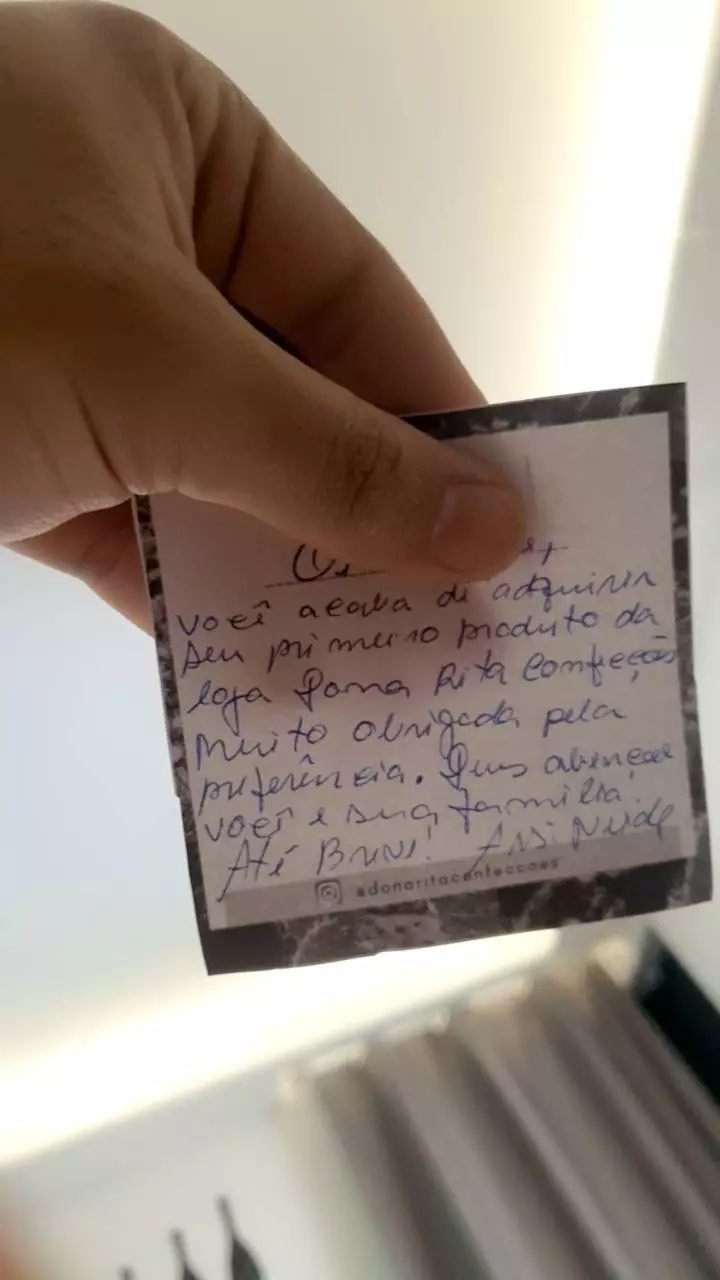 você acaba de adquirir
seu primeiro produto da
loja Dona Rita Confecções
Muito obrigada pela
preferência. Deus abençoe
você e sua família!
Até Breve! Ass: Neide
@donaritaconfeccoes